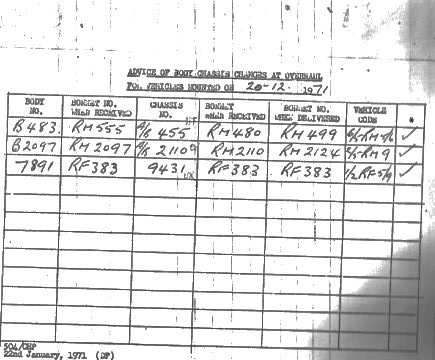 ADVICE OF BODY CHASSIS CHANGES AT OVERHAUL
FOR VEHICLES MOUNTED ON 20-12- 1971
BODY NO. BONNET NO. WHEN RECEIVED CHASSIS NO. BONNET WHEN RECEIVED BONNET NO. WHEN DELIVERED VEHICLE CODE *
B483. RM555 455 RM480 RM499 ✓
B2097 RM2097 RM2110 RM2124 ✓
7891 RF383 9431 RF383 RF383 ✓
504/CHP
22nd January, 1971 (DF)